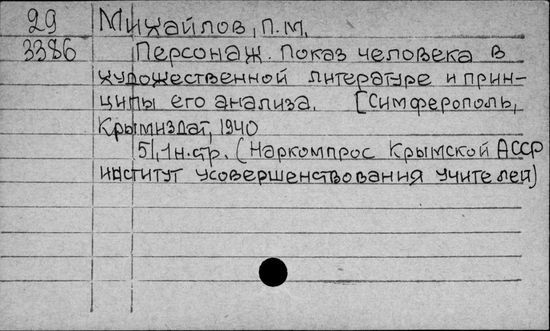 29 Михайлов, П.М.
3386 Персонаж. Показ человека в
художественной литературе и прин-
ципы его анализа. [Симферополь,
Крымиздат, 1940
51, 1 н. стр. (Наркомпрос Крымской АССР
институт усовершенствования учителей)